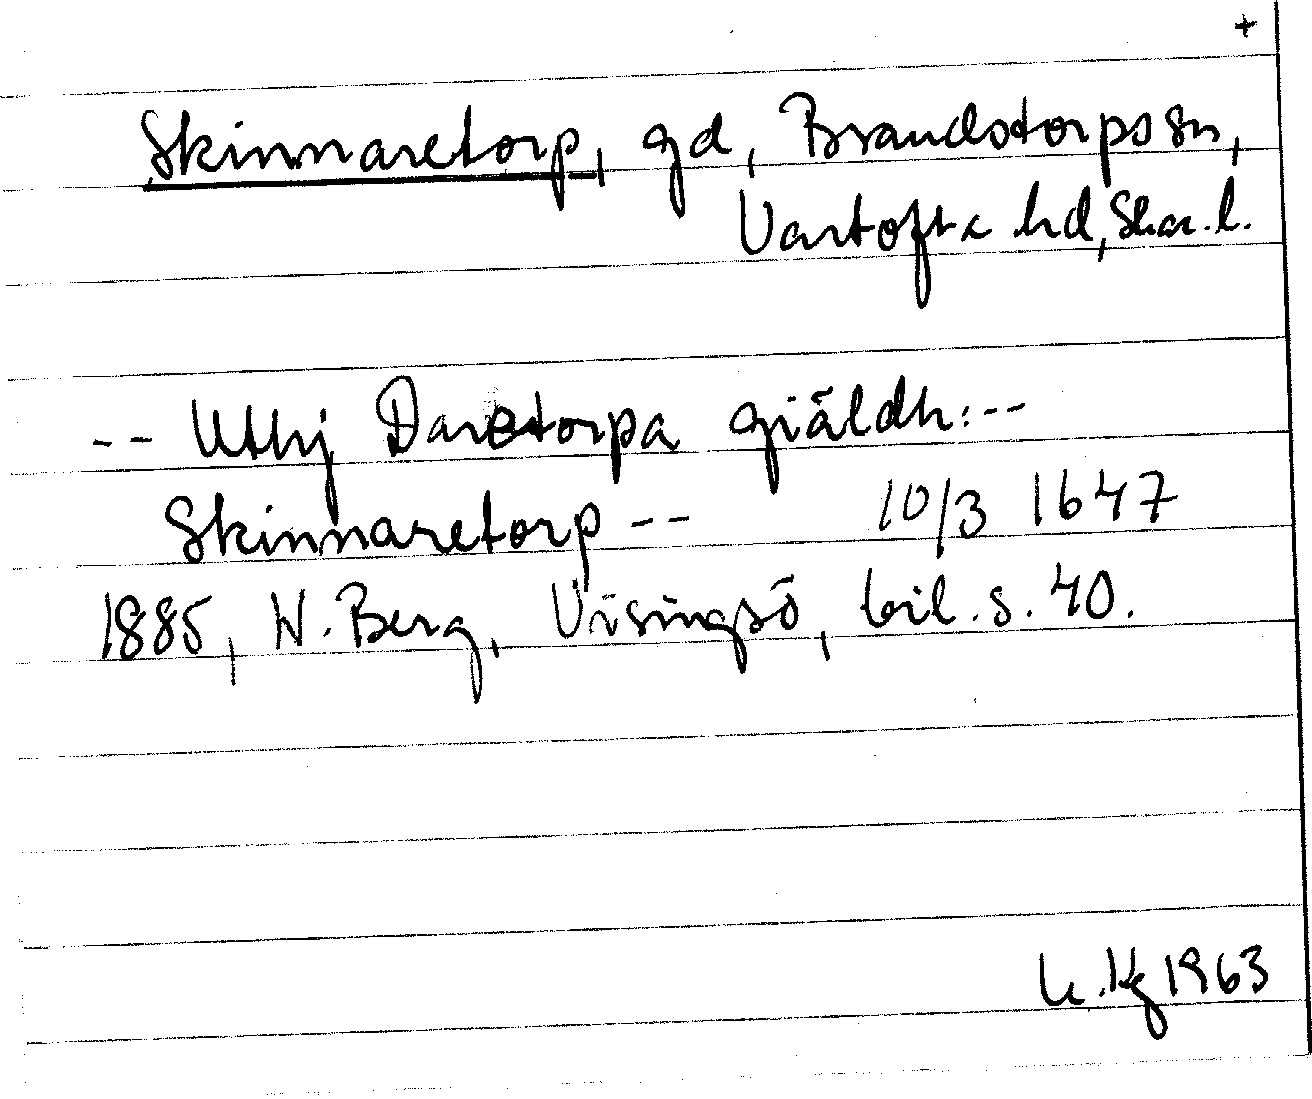 +
Skinnaretorp, gd, Brandstorps sn,
Vartofta hd, Skar. l.
-- Uthj Daretorpa giäldh: --
Skinnaretorp -- 10/3 1647
1885, W. Berg, Visingsö, bil. s. 40.
1963